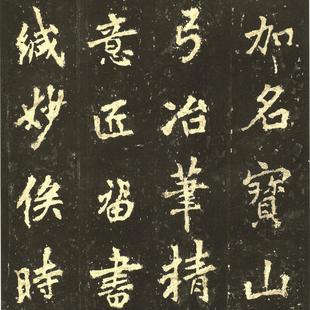 加名寶山
弓冶筆精
意匠留書
緘妙俟時